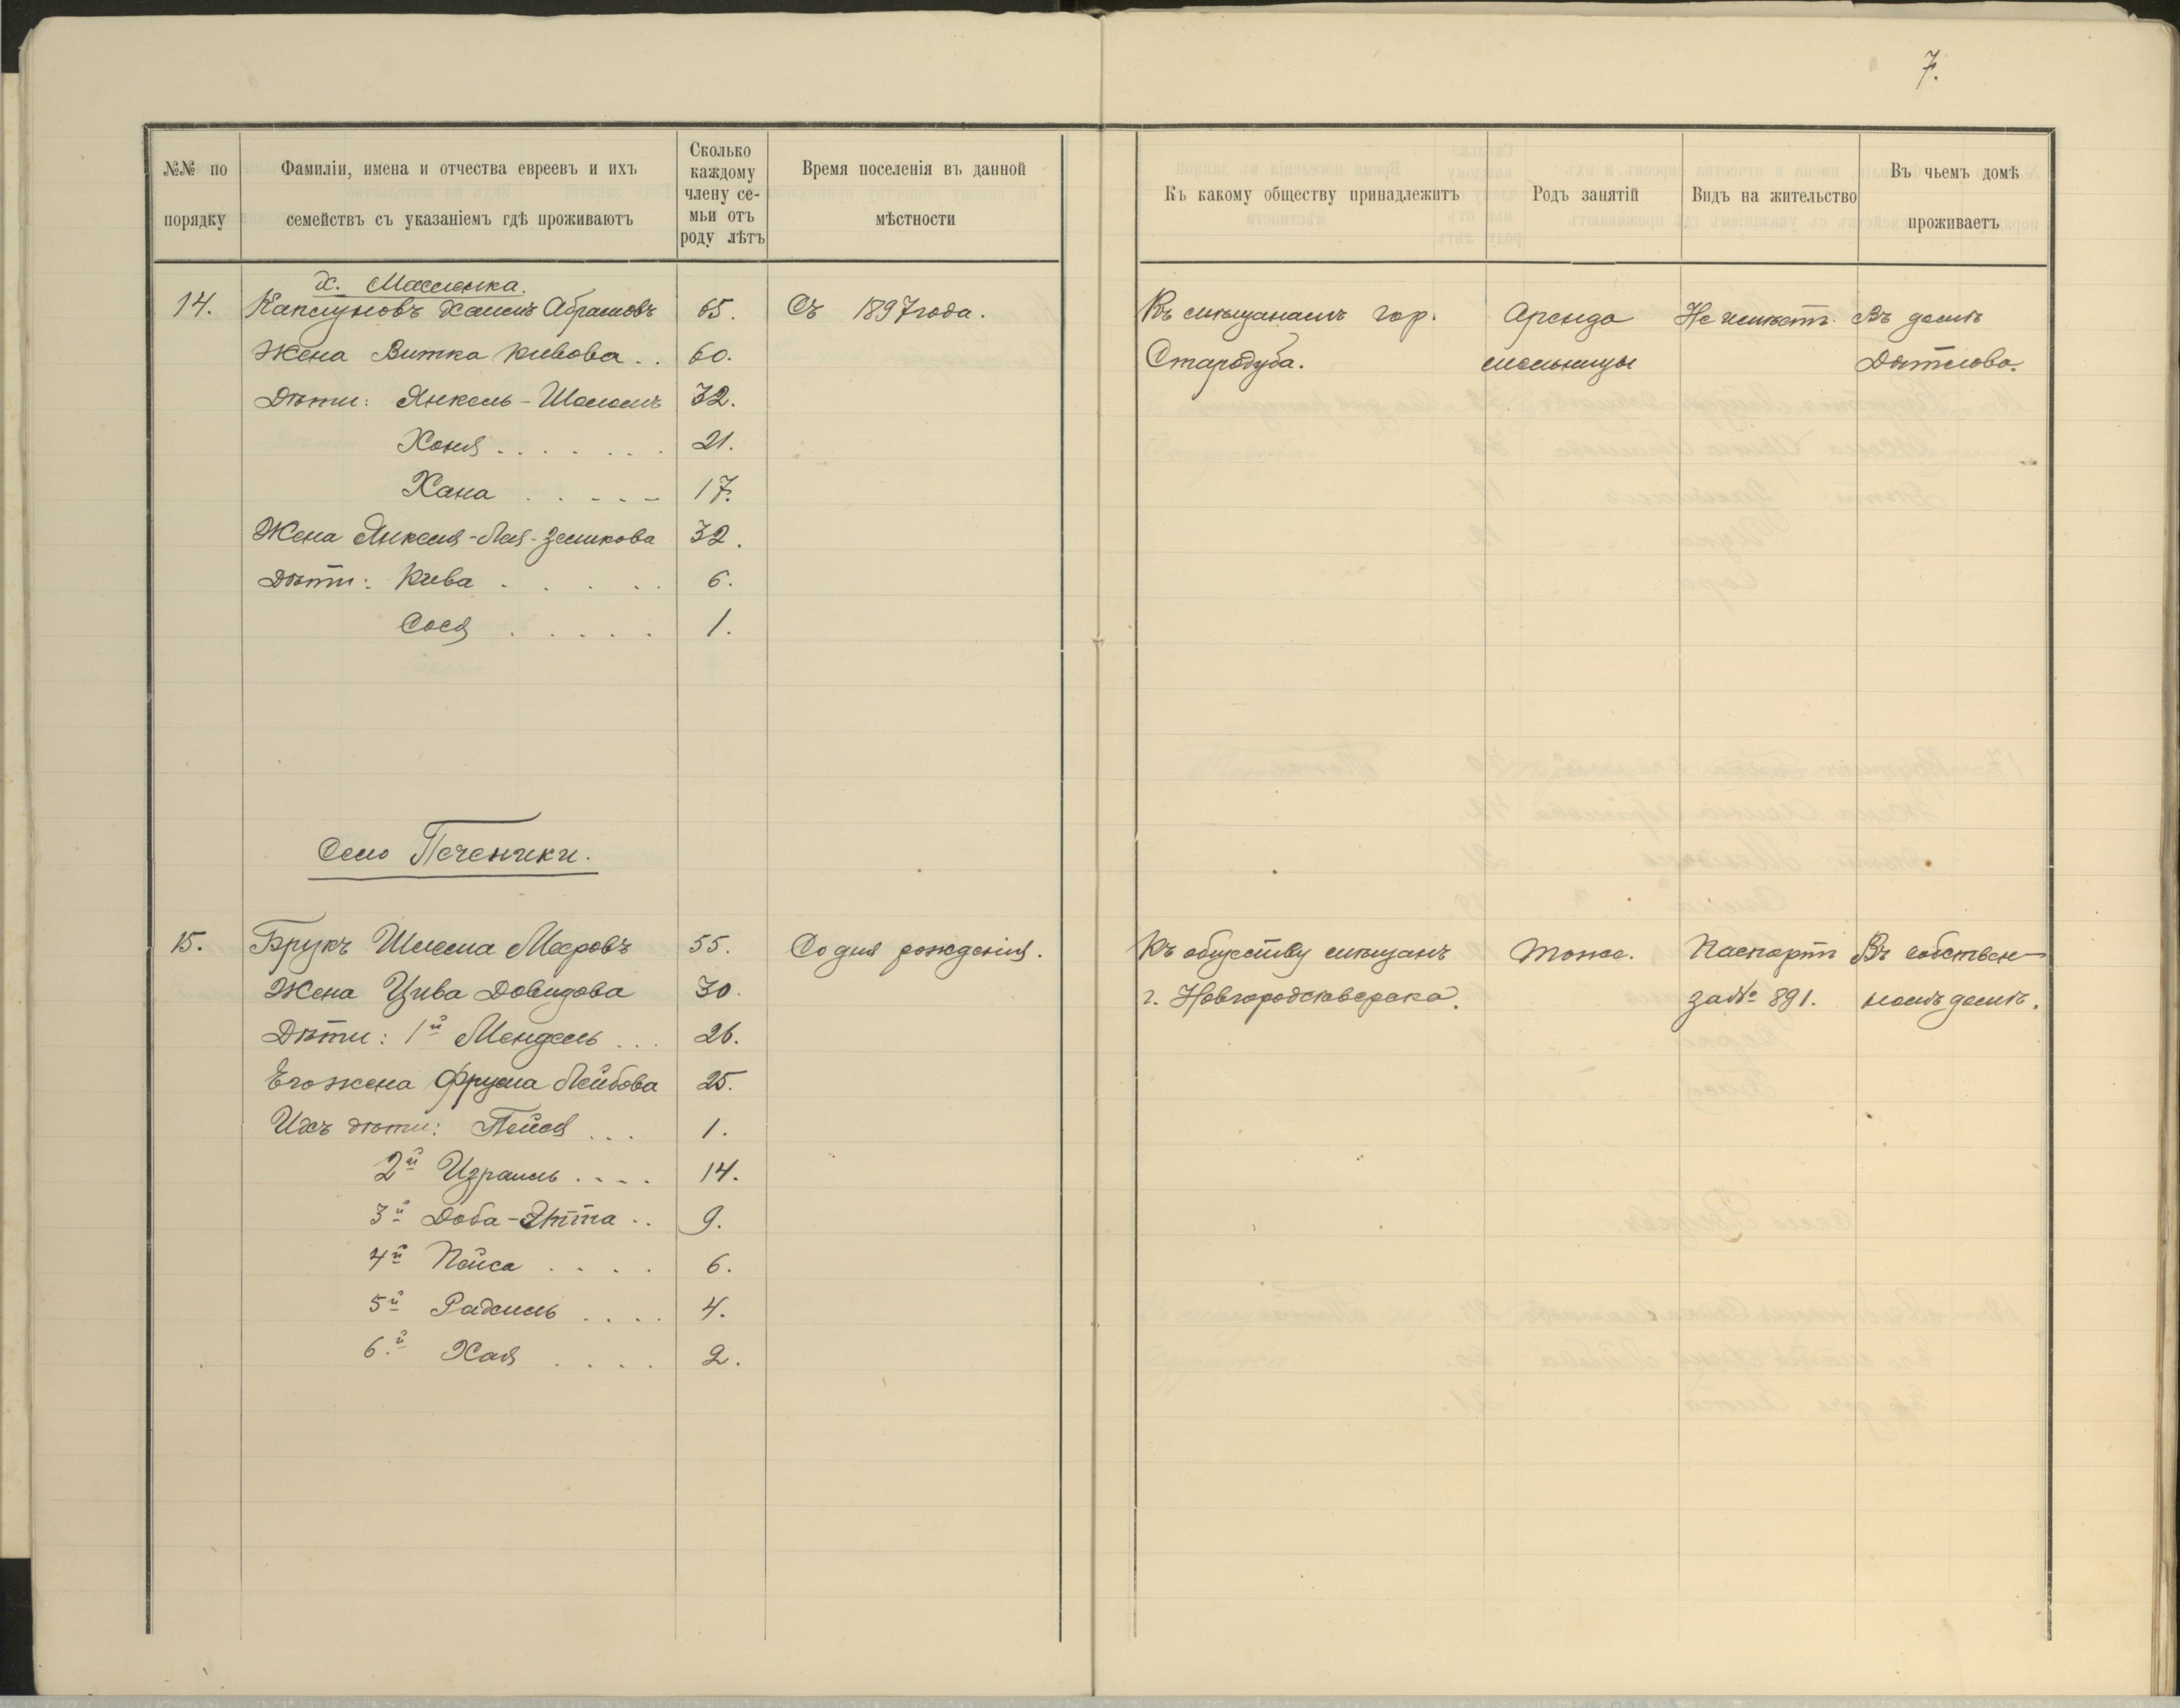 7.
№№ по порядку
Фамиліи, имена и отчества евреевъ и ихъ семействъ съ указаніемъ гдѣ проживаютъ
Сколько каждому члену семьи отъ роду лѣтъ
Время поселенія въ данной мѣстности
Къ какому обществу принадлежитъ
Родъ занятій
Видъ на жительство
Въ чьемъ домѣ проживаетъ
х. Масленка.
14. Каплуновъ Хаимъ Абрамовъ 65. Съ 1897 года. Къ мѣщанамъ гор. Аренда Не имѣетъ. Въ домѣ
Жена Витка Кивова . . 60. Стародуба. мельницы Дятлова.
Дѣти: Янкель-Шоломъ 32.
Хоня . . . . . . . 21.
Хана . . . . . 17.
Жена Янкеля-Лея-Зеликова 32.
Дѣти: Кива . . . . . 6.
Сося . . . . . 1.
Село Печеники.
15. Брукъ Шлема Мееровъ 55. Со дня рожденія. Къ обществу мѣщанъ Тоже. Паспортъ Въ собствен-
Жена Цива Довидова 30. г. Новгородсѣверска. за № 891. номъ домѣ.
Дѣти: 1й Мендель . . . 26.
Его жена Фрума Лейбова 25.
Ихъ дѣти: Пейся . . . 1.
2й Израиль . . . . 14.
3й Доба-Этта . . 9.
4й Пейса . . . . 6.
5й Рахиль . . . . 4.
6.й Хая . . . . 2.